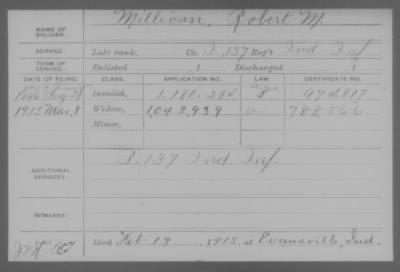 NAME OF SOLDIER: Millican, Robert M.
SERVICE: Late rank, Co. I, 137 Reg't Ind Inf
TERM OF SERVICE: Enlisted , 1 Discharged , 1
DATE OF FILING. CLASS. APPLICATION NO. LAW. CERTIFICATE NO.
1896 Aug Invalid, 1,180,394 974,917
1915 Mar. 8 Widow, 1,042,939 788,566
Minor,
ADDITIONAL SERVICES: 137 Ind Inf
REMARKS:
Died Feb 19, 1915, at Evansville, Ind.